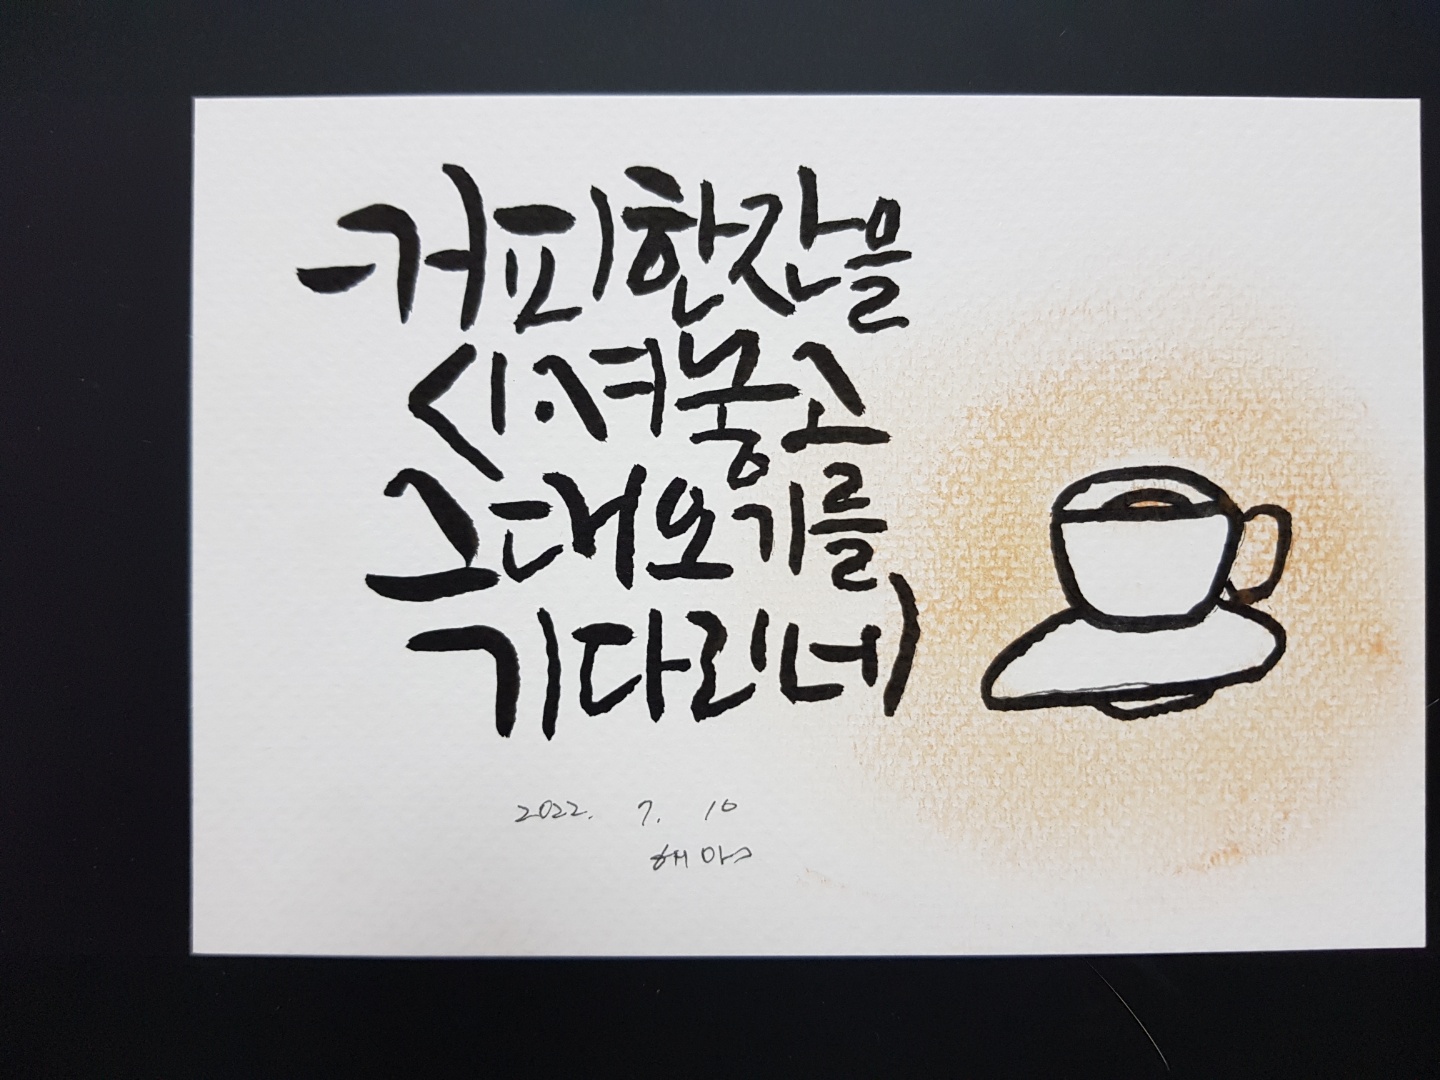 커피한잔을
시켜놓고
그대오기를
기다린네
2022. 7. 10